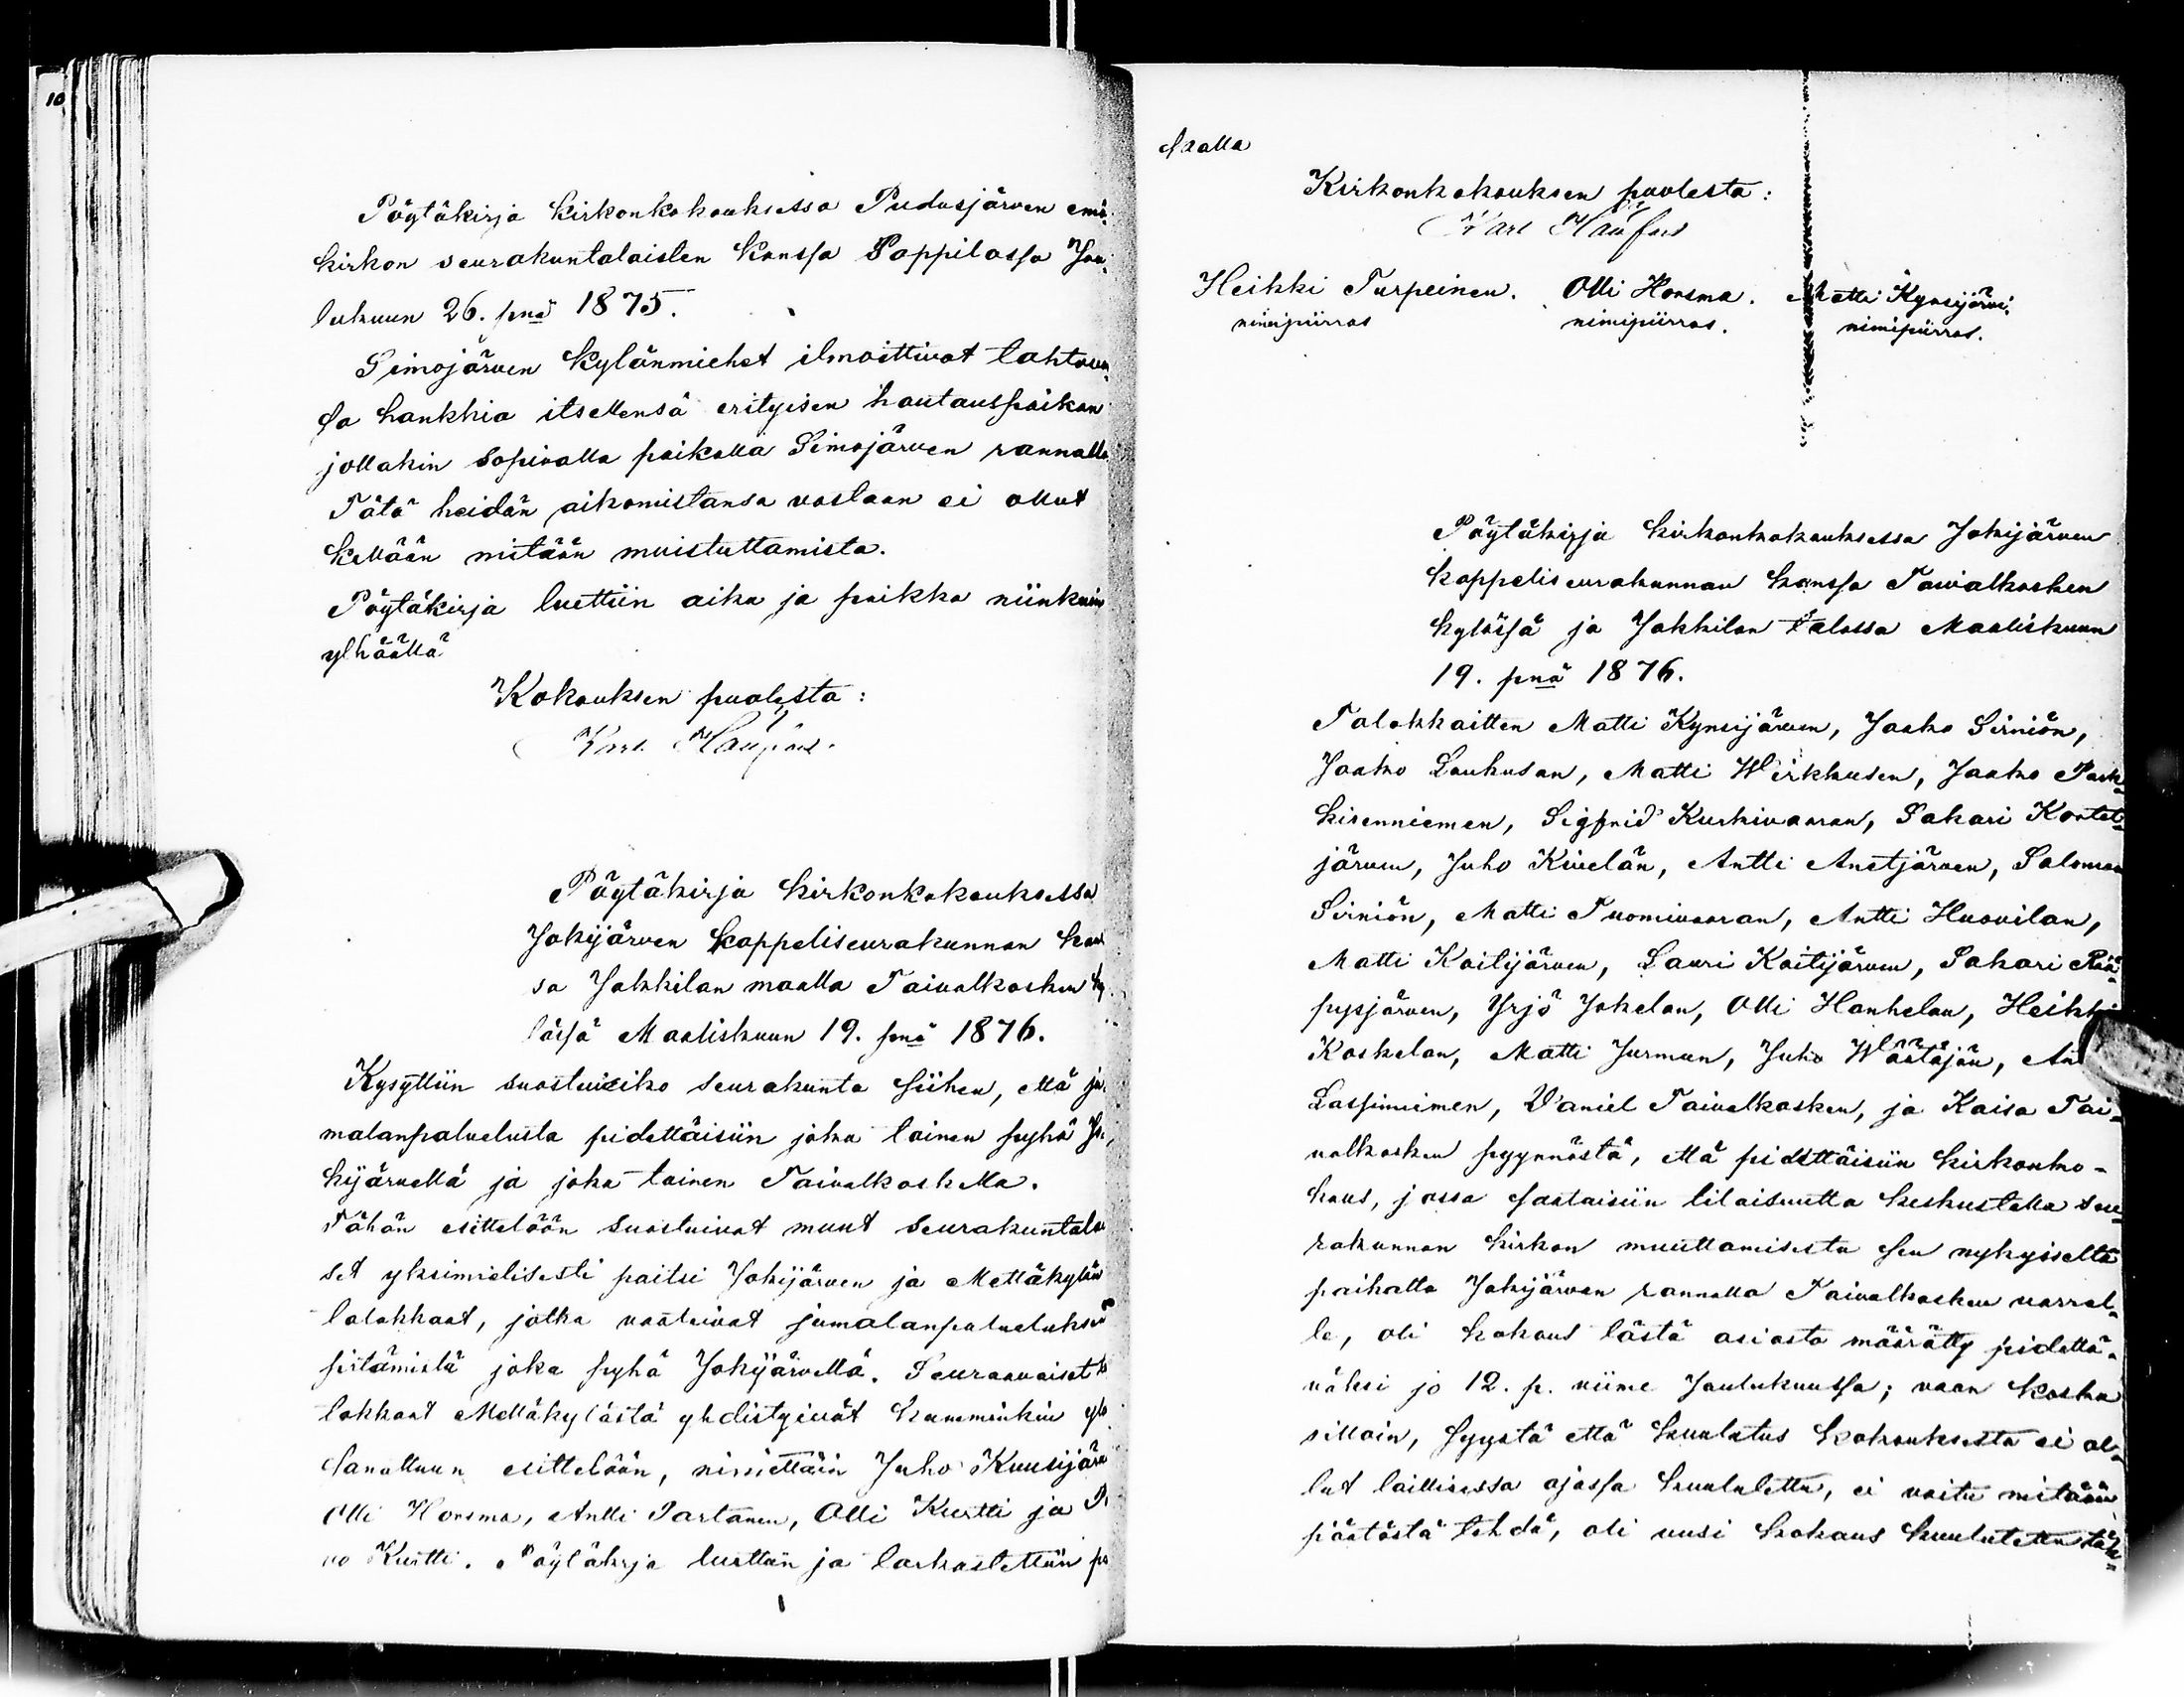 10
Pöytäkirja kirkonkokouksessa Pudasjärven emä-
kirkon seurakuntalaisten kanssa Pappilassa Jou-
lukuun 26. pnä 1875.
Simojärven kylänmiehet ilmoittivat tahtovan-
sa hankkia itsellensä erityisen hautauspaikan
jollakin sopivalla paikalla Simojärven rannalla
Tätä heidän aikomistansa vastaan ei ollut
kellään mitään muistuttamista.
Pöytäkirja luettiin aika ja paikka niinkuin
ylhäällä
Kokouksen puolesta:
Karl
Pöytäkirja kirkonkokouksessa
Jokijärven kappeliseurakunnan kans
sa Jokkilan maalla Taivalkosken ky
lässä Maaliskuun 19. pnä 1876.
Kysyttiin suostuisiko seurakunta siihen, että ju-
malanpalvelusta pidettäisiin joka toinen pyhä Jo-
kijärvellä ja joka toinen Taivalkoskella.
Tähän esittelöön suostuivat muut seurakuntalai
set yksimielisesti paitsi Jokijärven ja Mettäkylän
talokkaat, jotka vaativat jumalanpalveluksen
pitämistä joka pyhä Jokijärvellä. Seuraavaiset ta
lokkaat Mettäkylästä yhdistyivät kumminkin yllä
sanottuun esittelöön, nimittäin Juho Kuusijärvi
Olli Horsma, Antti Partanen, Olli Kurtti ja
vo Kurtti. Pöytäkirja luettiin ja tarkastettiin pa
ikalla
Kirkonkokouksen puolesta:
Karl
Heikki Turpeinen. Olli Horsma. Matti Kynsijärvi.
nimipiirros nimipiirros. nimipiirros.
Pöytäkirja kirkonkokouksessa Jokijärven
kappeliseurakunnan kanssa Taivalkosken
kylässä ja Jokkilan talossa Maaliskuun
19. pnä 1876.
Talokkaitten Matti Kynsijärven, Jaako Sirniön,
Jaako Loukusan, Matti Wirkkusen, Jaako Park-
kisenniemen, Sigfrid Kurkivaaran, Sakari Kontet-
järven, Juho Kivelän, Antti Anetjärven, Saloman
Sirniön, Matti Tuomivaaran, Antti Huovilan,
Matti Koitijärven, Lauri Koitijärven, Sakari Rää-
pysjärven, Yrjö Jokelan, Olli Hanhelan, Heikki
Koskelan, Matti Jurmun, Juho Wäätäjän, An
Lassiniemen, Daniel Taivalkosken, ja Kaisa Tai-
valkosken pyynnöstä, että pidettäisiin kirkonko-
kous, jossa saataisiin tilaisuutta keskustella seu-
rakunnan kirkon muuttamisesta sen nykyiseltä
paikalta Jokijärven rannalla Taivalkosken varrel-
le, oli kokous tästä asiasta määrätty pidettä-
väksi jo 12. p. viime Joulukuussa; vaan koska
silloin, syystä että kuulutus kokouksesta ei ol-
lut laillisessa ajassa kuulutettu, ei voitu mitään
päätöstä tehdä, oli uusi kokous kuulutettu täk-